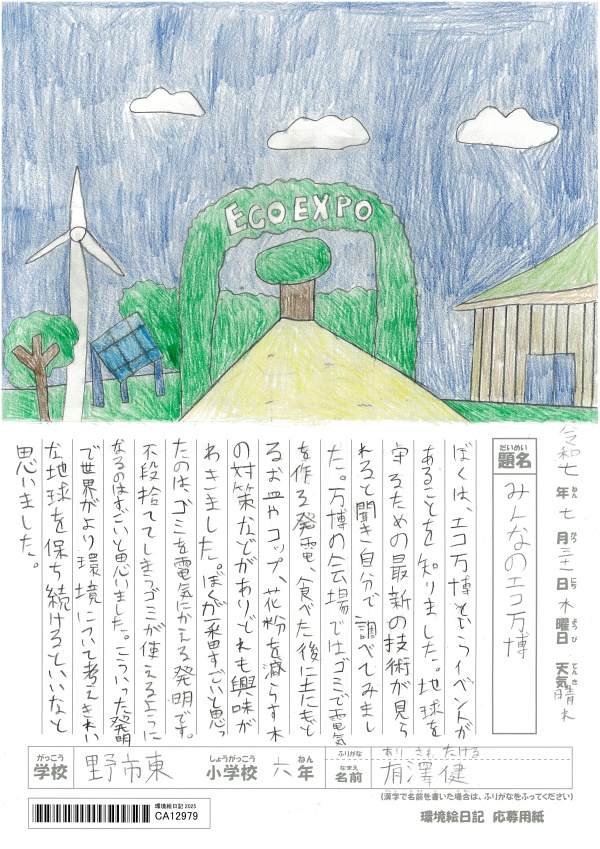 ECO EXPO
令和七年七月三十一日木曜日 天気晴れ
ねん
がつ
にち
ようび
てんき
だいめい
題名
みんなのエコ万博
ぼくは、エコ万博というイベントが
あることを知りました。地球を
守るための最新の技術が見ら
れると聞き自分で調べてみまし
た。万博の会場ではゴミで電気
を作る発電、食べた後に土にもど
るお皿やコップ、花粉を減らす木
の対策などがありどれも興味が
わきました。ぼくが一番すごいと思っ
たのは、ゴミを電気にかえる発明です。
不段捨ててしまうゴミが使えるように
なるのはすごいと思いました。こういった発明
で世界がより環境について考えきれい
な地球を保ち続けるといいなと
思いました。
がっこう
学校
野市東
しょうがっこう
小学校
六
ねん
年
ふりがな
ありさわ たける
なまえ
名前
有澤健
(漢字で名前を書いた場合は、ふりがなをふってください)
環境絵日記 2025
CA12979
環境絵日記 応募用紙